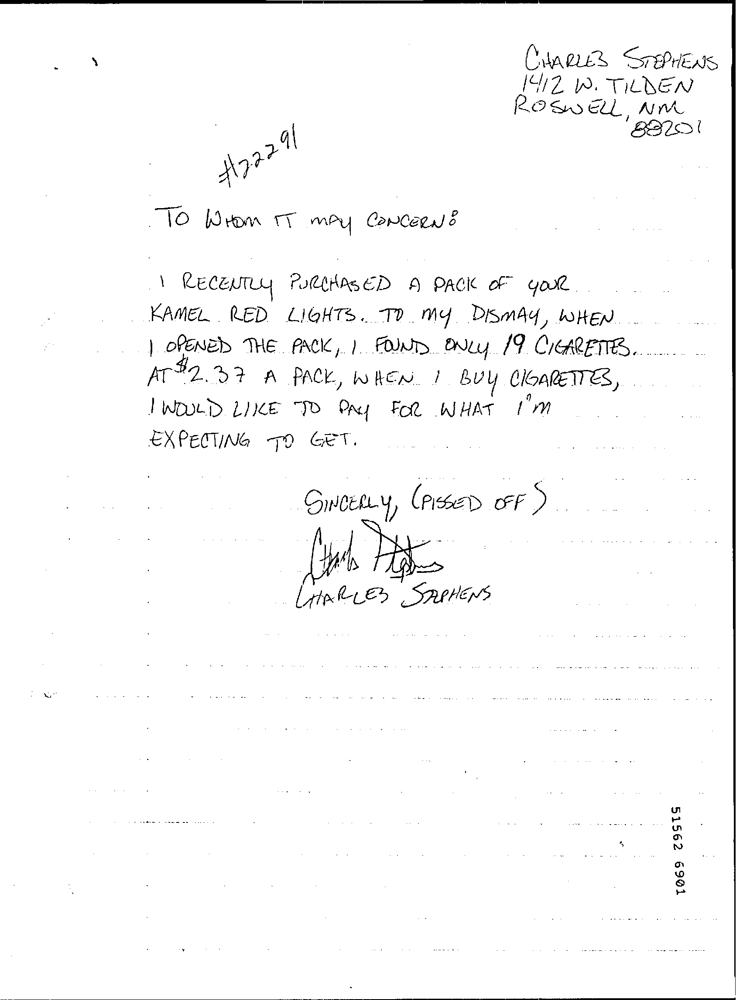 CHARLES STEPHENS
1412 W. TILDEN
ROSWELL, NM
88201
#22291
TO WHOM IT MAY CONCERN:
I RECENTLY PURCHASED A PACK OF YOUR
KAMEL RED LIGHTS. TO MY DISMAY, WHEN
I OPENED THE PACK, I FOUND ONLY 19 CIGARETTES.
AT $2.37 A PACK, WHEN I BUY CIGARETTES,
I WOULD LIKE TO PAY FOR WHAT I'M
EXPECTING TO GET.
SINCERLY, (PISSED OFF)
Charles Stephens
CHARLES STEPHENS
51562 6901